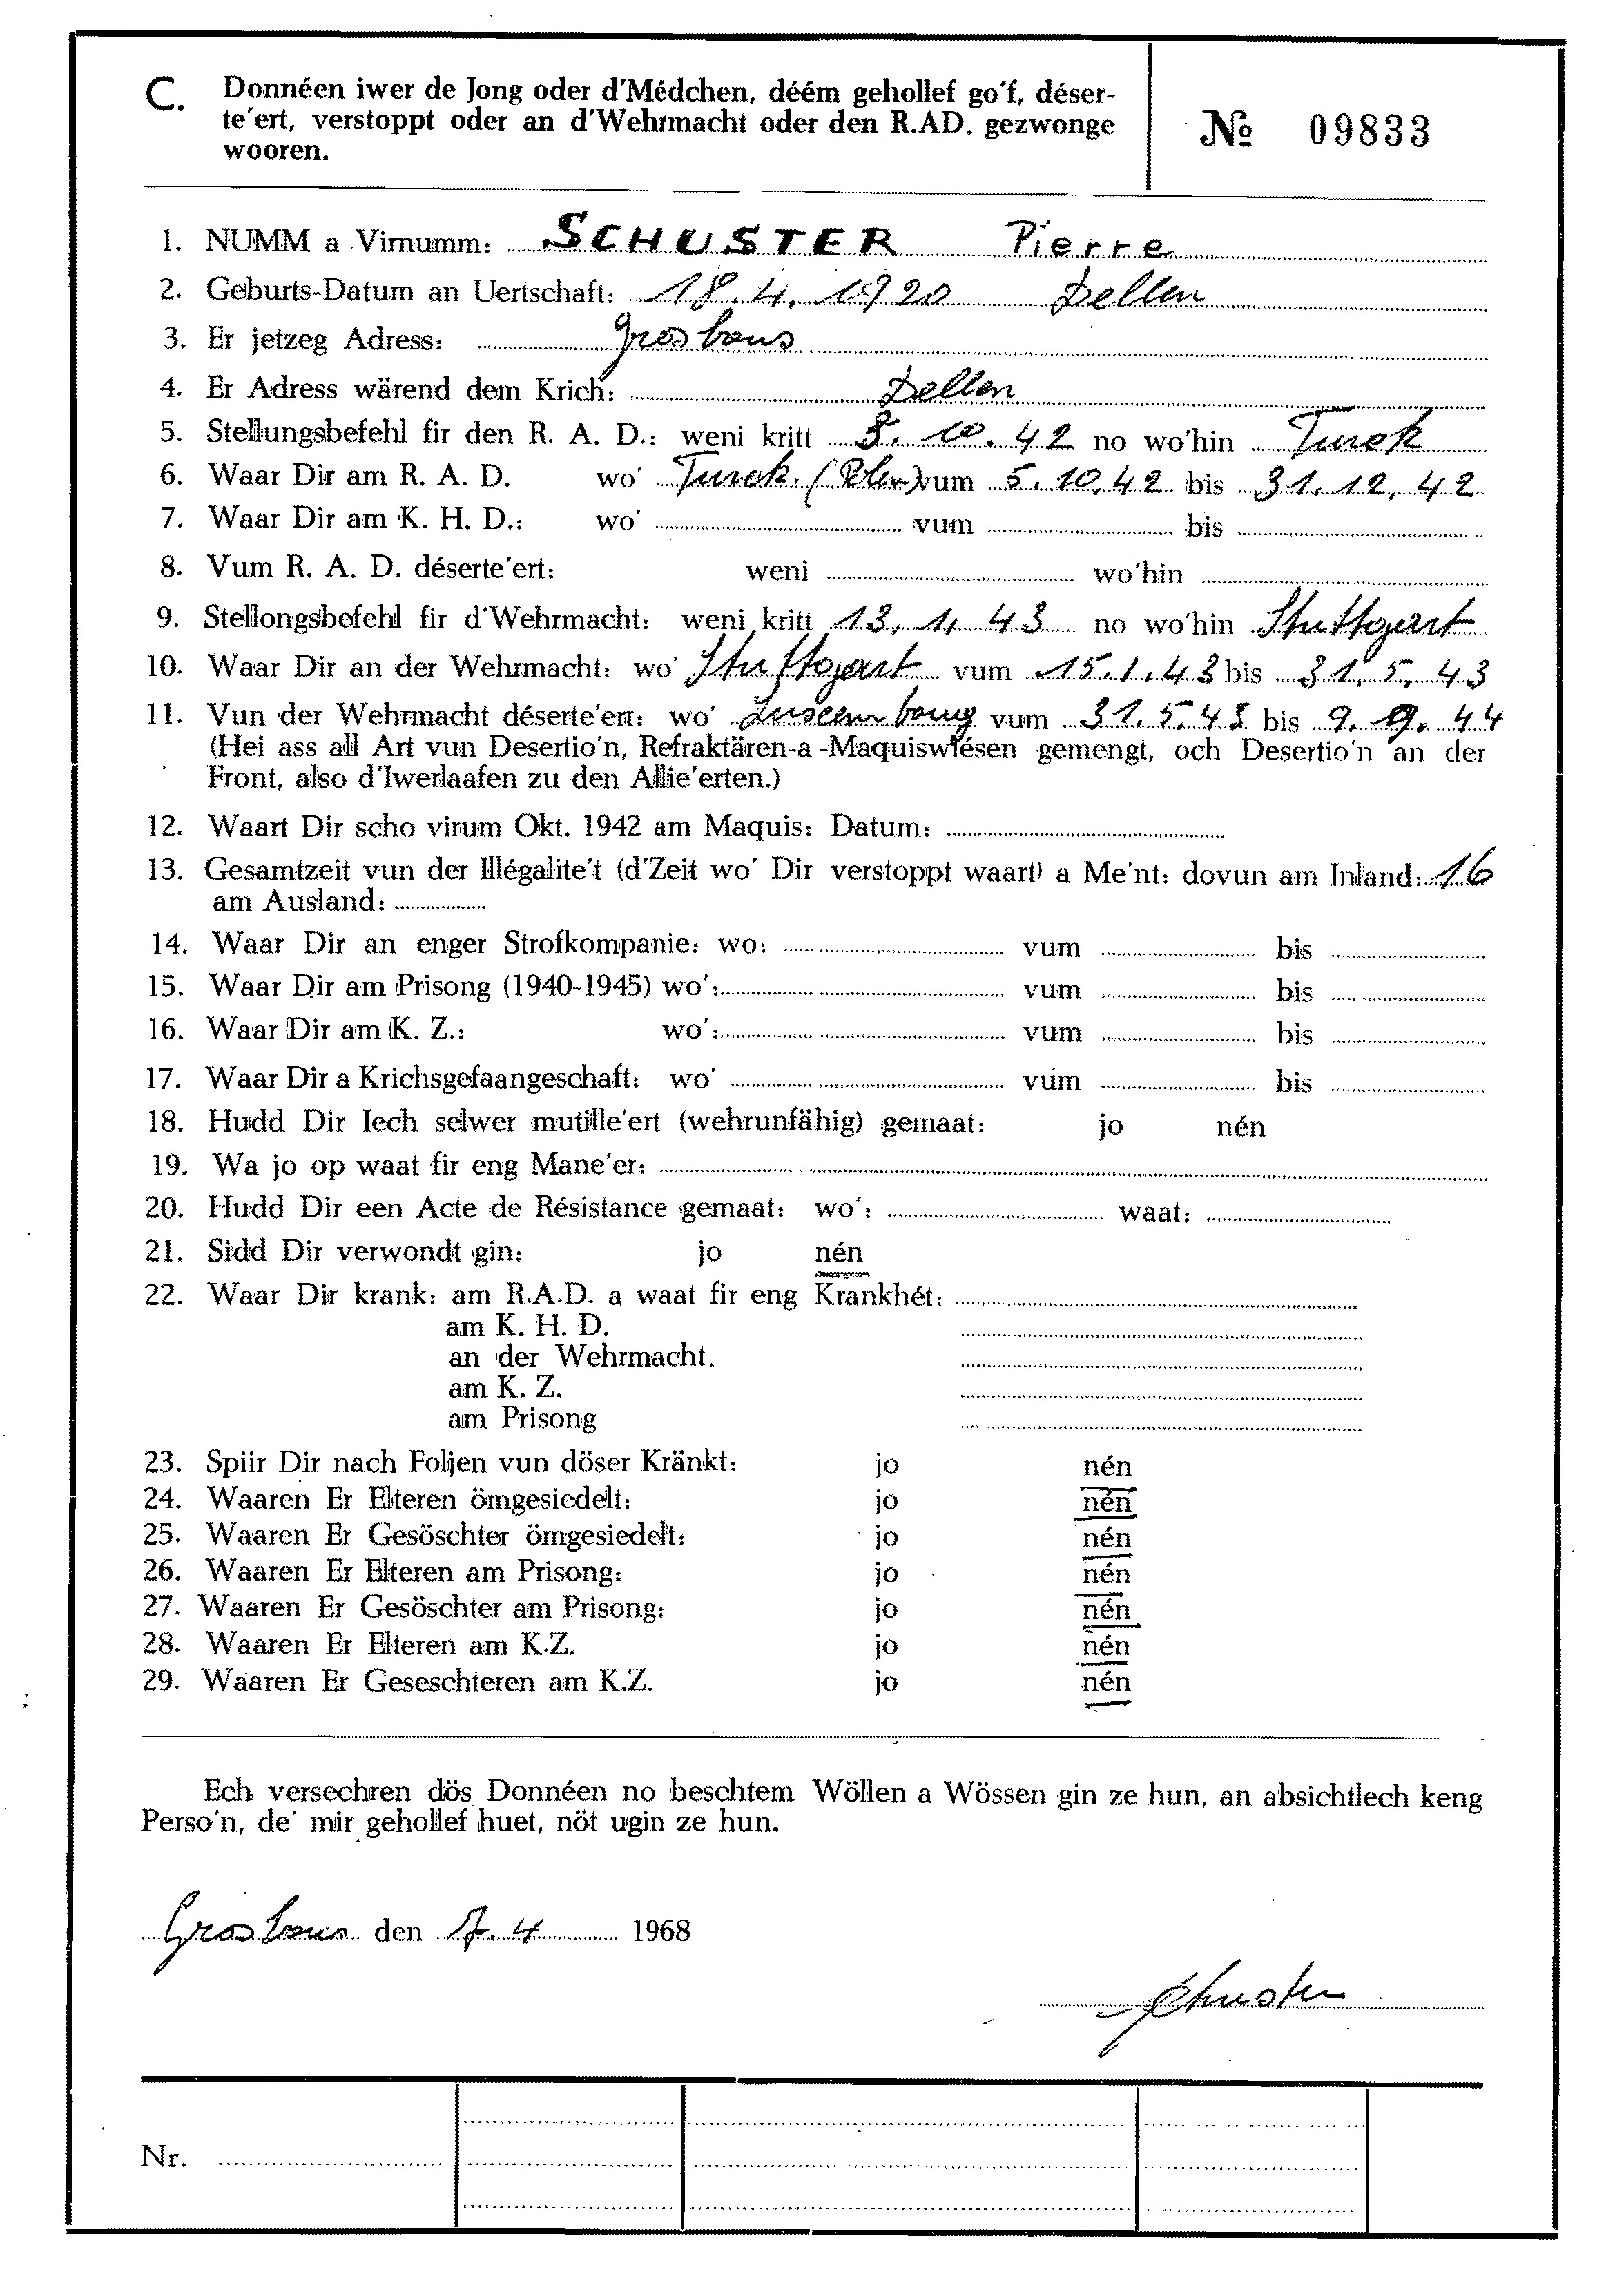 C. Donnéen iwer de Jong oder d'Médchen, déém gehollef go'f, déser-
te'ert, verstoppt oder an d'Wehrmacht oder den R.AD. gezwonge
wooren.
№ 09833
1. NUMM a Virnumm: SCHUSTER Pierre
2. Geburts-Datum an Uertschaft: 18.4.1920 Dellen
3. Er jetzeg Adress: Grosbous
4. Er Adress wärend dem Krich: Dellen
5. Stellungsbefehl fir den R. A. D.: weni kritt 3. 10. 42 no wo'hin Turek
6. Waar Dir am R. A. D. wo' Turek. (Polen) vum 5.10.42 bis 31.12.42
7. Waar Dir am K. H. D.: wo' vum bis
8. Vum R. A. D. déserte'ert: weni wo'hin
9. Stellongsbefehl fir d'Wehrmacht: weni kritt 13. 1. 43 no wo'hin Stuttgart
10. Waar Dir an der Wehrmacht: wo' Stuttgart vum 15.1.43 bis 31.5.43
11. Vun der Wehrmacht déserte'ert: wo' Luxembourg vum 31.5.43 bis 9.9.44
(Hei ass all Art vun Desertio'n, Refraktären-a-Maquiswiésen gemengt, och Desertio'n an der
Front, also d'Iwerlaafen zu den Allie'erten.)
12. Waart Dir scho virum Okt. 1942 am Maquis: Datum:
13. Gesamtzeit vun der Illégalite't (d'Zeit wo' Dir verstoppt waart) a Me'nt: dovun am Inland: 16
am Ausland:
14. Waar Dir an enger Strofkompanie: wo: vum bis
15. Waar Dir am Prisong (1940-1945) wo': vum bis
16. Waar Dir am K. Z.: wo': vum bis
17. Waar Dir a Krichsgefaangeschaft: wo' vum bis
18. Hudd Dir Iech selwer mutille'ert (wehrunfähig) gemaat: jo nén
19. Wa jo op waat fir eng Mane'er:
20. Hudd Dir een Acte de Résistance gemaat: wo': waat:
21. Sidd Dir verwondt gin: jo nén
22. Waar Dir krank: am R.A.D. a waat fir eng Krankhét:
am K. H. D.
an der Wehrmacht.
am K. Z.
am Prisong
23. Spiir Dir nach Foljen vun döser Kränkt: jo nén
24. Waaren Er Elteren ömgesiedelt: jo nén
25. Waaren Er Gesöschter ömgesiedelt: jo nén
26. Waaren Er Elteren am Prisong: jo nén
27. Waaren Er Gesöschter am Prisong: jo nén
28. Waaren Er Elteren am K.Z. jo nén
29. Waaren Er Geseschteren am K.Z. jo nén
Ech versechren dös Donnéen no beschtem Wöllen a Wössen gin ze hun, an absichtlech keng
Perso'n, de' mir gehollef huet, nöt ugin ze hun.
Grosbous den 7.4 1968
Schuster
Nr.